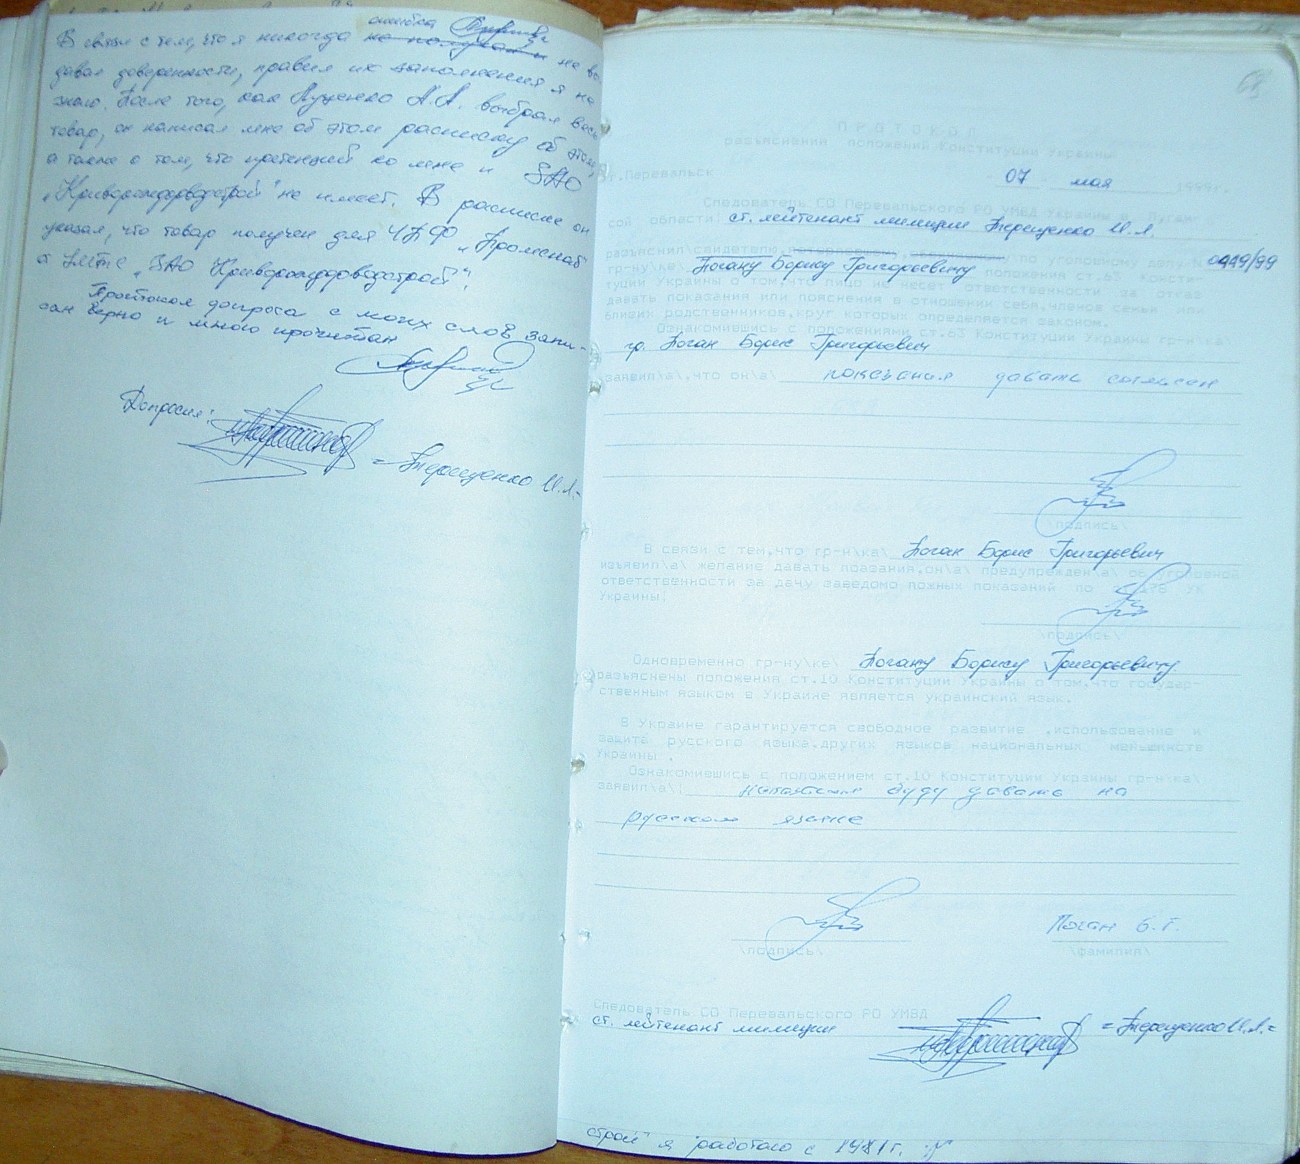 ошибка
В связи с тем, что я никогда не получал и не вы-
давал доверенности, правил их заполнения я не
знаю. После того, как Луценко А.А. выбрал весь
товар, он написал мне об этом расписку об этом,
а также о том, что претензией ко мне и ЗАО
„Криворождорводстрой" не имеет. В расписке он
указал, что товар получен для ЧПФ „Промснаб"
от ЗАО Криворождорводстрой".
Протокол допроса с моих слов запи-
сан верно и мною прочитан
Допросил:
= Терещенко И.Л.=
ПРОТОКОЛ
разъяснения положений Конституции Украины
г.Перевальск 07 мая 1999г.
Следователь СО Перевальского РО УМВД Украины в Луган-
ской области: ст. лейтенант милиции Терещенко И.Л.
разъяснил\свидетелю, потерпевшему, \по уголовному делу № 0449/99
гр-ну\ке\ Погану Борису Григорьевичу положения ст.63 Консти-
туции Украины о том,что лицо не несет ответственности за отказ
давать показания или пояснения в отношении себя,членов семьи или
близких родственников,круг которых определяется законом.
Ознакомившись с положениями ст.63 Конституции Украины гр-н\ка\
гр. Поган Борис Григорьевич
заявил\а\,что он\а\ показания давать согласен
\подпись\
В связи с тем,что гр-н\ка\ Поган Борис Григорьевич
изъявил\а\ желание давать показания,он\а\ предупрежден\а\ об уголовной
ответственности за дачу заведомо ложных показаний по УК
Украины.
\подпись\
Одновременно гр-ну\ке\ Погану Борису Григорьевичу
разъяснены положения ст.10 Конституции Украины о том,что государ-
ственным языком в Украине является украинский язык.
В Украине гарантируется свободное развитие ,использование и
защита русского языка,других языков национальных меньшинств
Украины .
Ознакомившись с положением ст.10 Конституции Украины гр-н\ка\
заявил\а\: показания буду давать на
русском языке
Поган Б.Г.
\подпись\ \фамилия\
Следователь СО Перевальского РО УМВД
ст. лейтенант милиции = Терещенко И.Л.=
строй" я работаю с 1981г. в